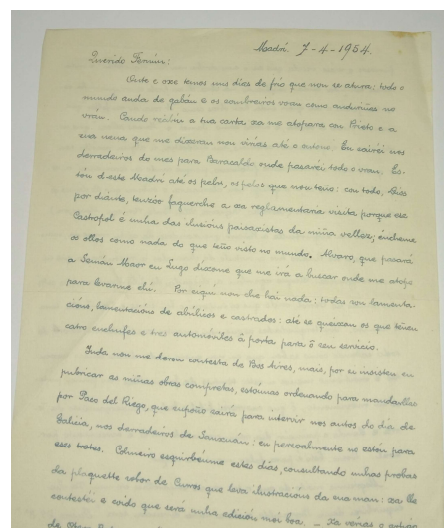 Madrí. 7-4-1954.
Querido Fermín:
Onte e oxe temos uns días de frío que non se atura: todo o
mundo anda de gabán e os sombreiros voan como anduriñas no
vrán. Cando recibín a tua carta xa me atopara con Prieto e a
sua nena que me dixeran non viñas até o outono. Eu sairei nos
derradeiros do mes para Baracaldo onde pasarei todo o vran. Es-
tou d'este Madrí até os pelos, os pelos que non teño: con todo, Dios
por diante, teuzoo faguerche a xa reglamentaria visita porque ese
Castropol é unha das ilusiós paisaxistas da miña vellez; éncheme
os ollos como nada do que teño visto no mundo. Alvaro, que pasará
a Semán Maor en Lugo díxome que me irá a buscar onde me atope
para levarme elí. Por eiquí non che hai nada: todas son lamenta-
ciós, lamentaciós de abúlicos e castrados: até se queixan os que teñen
catro enchufes e tres automóviles á porta para ô seu servicio.
Inda non me deron contesta de Bos Aires, mais, por eu insisten en
pubricar as miñas obras compretas, estounas ordenando para mandarllas
por Paco del Riego, que supoño sairá para intervir nos autos do día de
Galicia, nos derradeiros de Santuan: eu personalmente no estou para
esos trotes. Colmeiro esquirbéume estes días, consultando unhas probas
da plaquette sobor de Curros que leva ilustraciós da sua man: xa lle
contestéi e coido que será unha edición moi boa. – Xa verías o